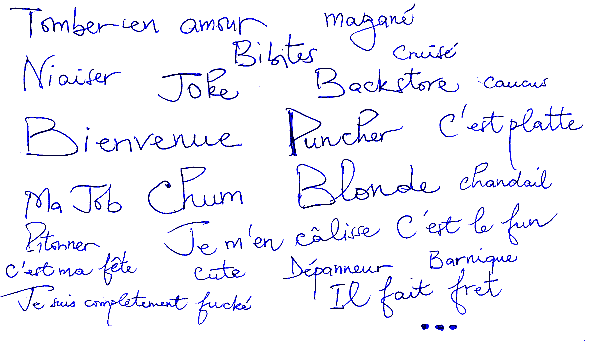 Tomber en amour magané
Bibites Cruisé
Niaiser Joke Backstore caucus
Bienvenue Puncher C'est platte
Ma Job Chum Blonde chandail
Pitonner Je m'en câlisse C'est le fun
C'est ma fête cute Dépanneur Barnique
Je suis complètement fucké Il fait fret
...